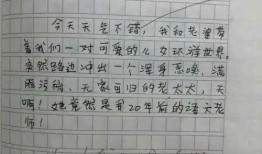 今天天气不错，我和老婆带
着我们一对可爱的儿女环游世界。
突然路边冲出一个浑身恶臭，满
脚污秽，无家可归的老太太，天
哪！她竟然是我20年前的语文老
师！